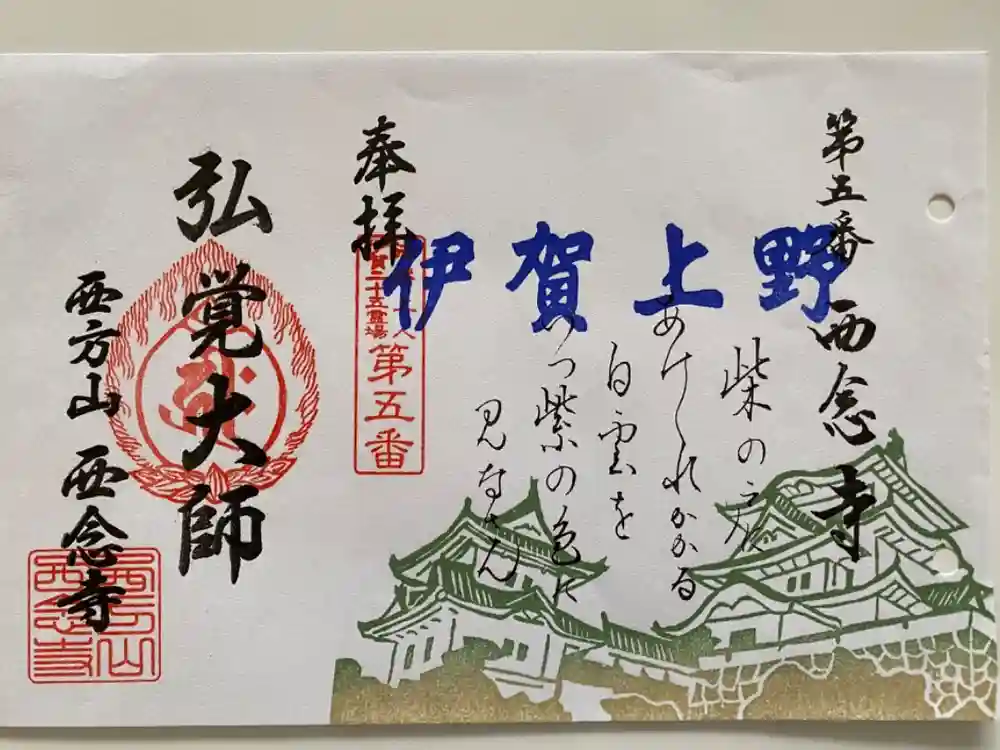 第五番 西念寺
伊賀上野
柴の戸に
あけくれかかる
白雲を
いつ紫の色に
見なさん
奉拝
二十五霊場
第五番
弘覚大師
西方山 西念寺
西方山
西念寺